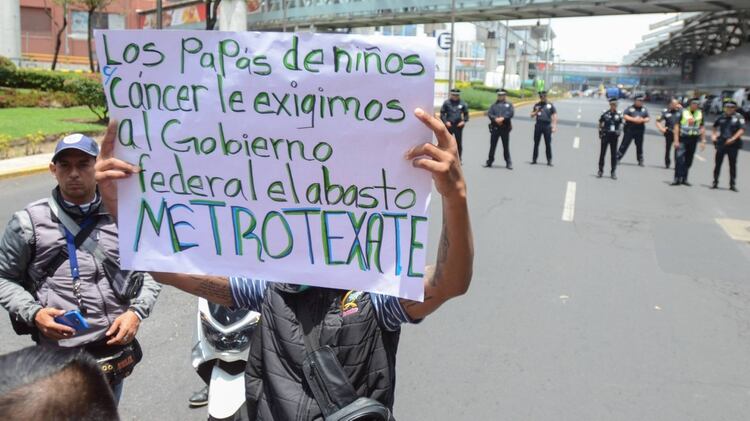 Los PaPás de niños
c/ Cáncer le exigimos
al Gobierno
federal el abasto
METROTEXATE
E